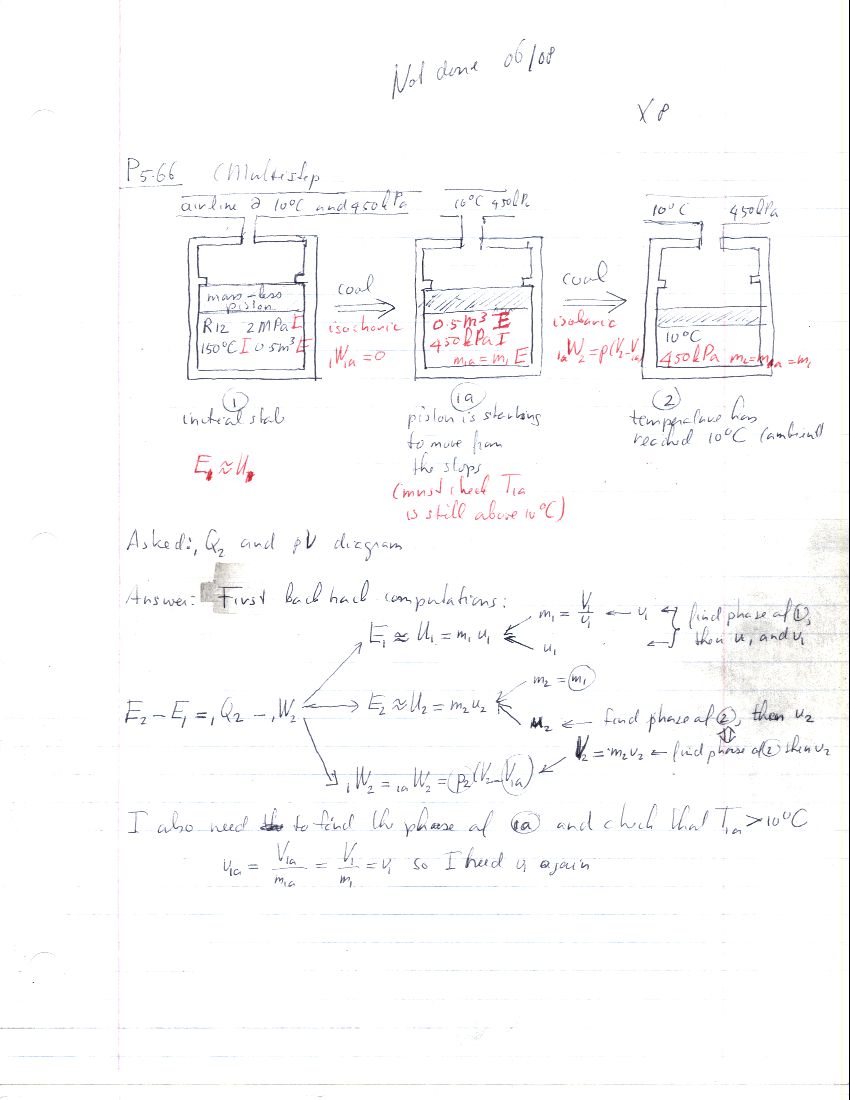 Not done 06/08
X8
P5.66 (Multistep
airline @ 10°C and 450kPa
10°C 450kPa
10°C 450kPa
mass-less
piston
R12 2MPa I
150°C I 0.5m³ E
cool
isochoric
₁W₁ₐ = 0
0.5m³ E
450kPa I
m₁ₐ = m₁ E
cool
isobaric
₁ₐW₂ = p(V₂-V₁ₐ)
10°C
450kPa m₂=m₁ₐ=m₁
①
initial state
E₁ ≈ U₁
1a
piston is starting
to move from
the stops
(must check T₁ₐ
is still above 10°C)
②
temperature has
reached 10°C (ambient)
Asked: ₁Q₂ and pV diagram
Answer: First back hack computations:
E₁ ≈ U₁ = m₁ u₁
m₁ = V₁/v₁ ← v₁
u₁ ←
find phase of ①,
then u₁ and v₁
E₂ - E₁ = ₁Q₂ - ₁W₂
E₂ ≈ U₂ = m₂u₂
m₂ = m₁
u₂ ← find phase of ②, then u₂
V₂ = m₂v₂ ← find phase of ② then v₂
₁W₂ = ₁ₐW₂ = p₂(V₂-V₁ₐ)
I also need to find the phase of 1a and check that T₁ₐ > 10°C
v₁ₐ = V₁ₐ/m₁ₐ = V₁/m₁ = v₁ so I need v₁ again